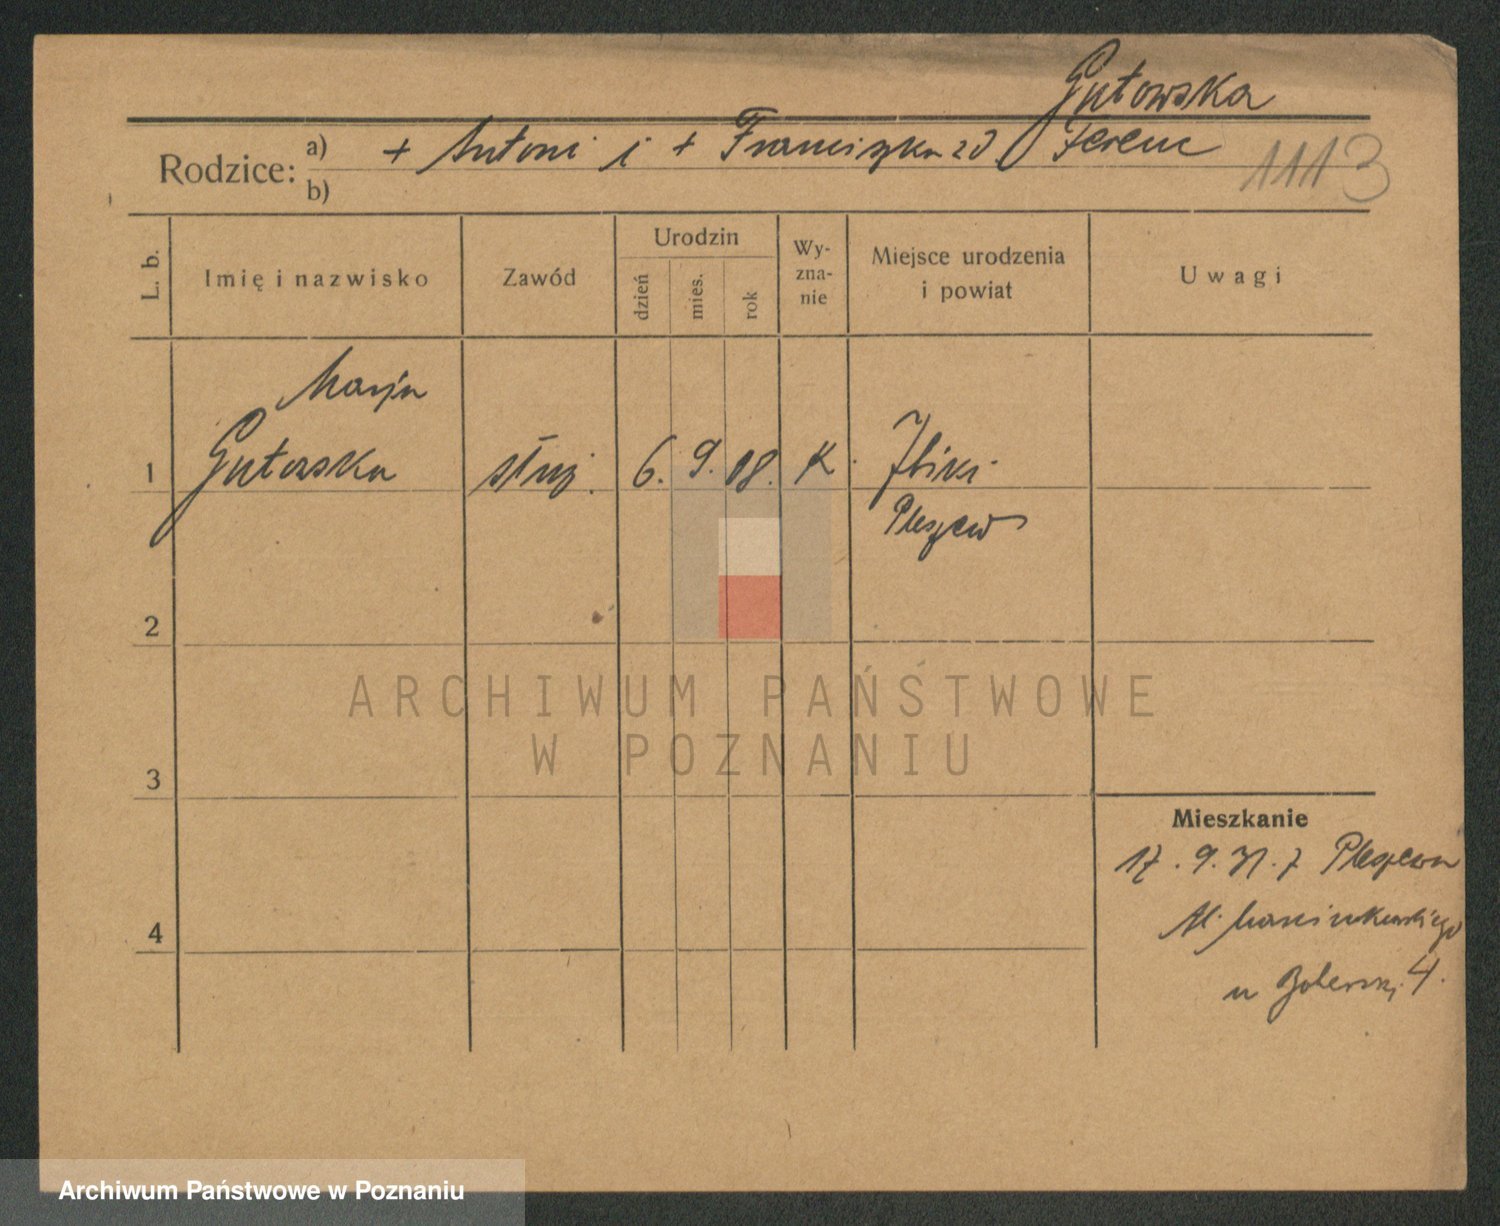 Gutowska
Rodzice: a) + Antoni i + Franciszka zd Ferenc
b)
1113
L. b.
Imię i nazwisko
Zawód
Urodzin
dzień
mies.
rok
Wy-
zna-
nie
Miejsce urodzenia
i powiat
Uwagi
Marja
1 Gutowska służ. 6. 9. 08. K.
Pleszew
2
ARCHIWUM PAŃSTWOWE
W POZNANIU
3
Mieszkanie
17. 9. 31. z Pleszewa
4
Al. Marcinkowskiego
4.
Archiwum Państwowe w Poznaniu